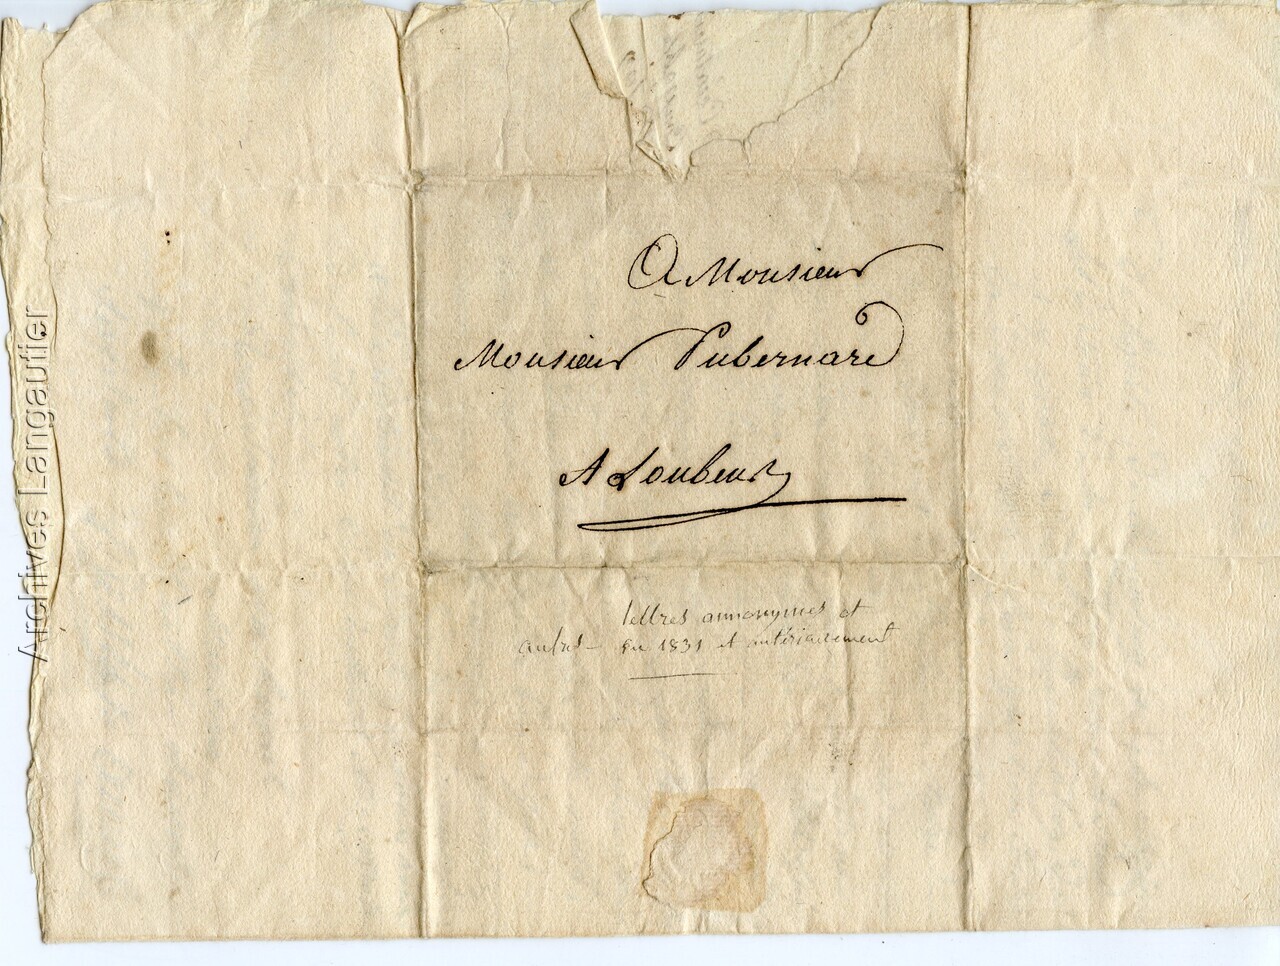 A Monsieur
Monsieur Pubernard
A Loubens
lettres annonymes et
autres en 1831 et antérieurement
Archives Langautier